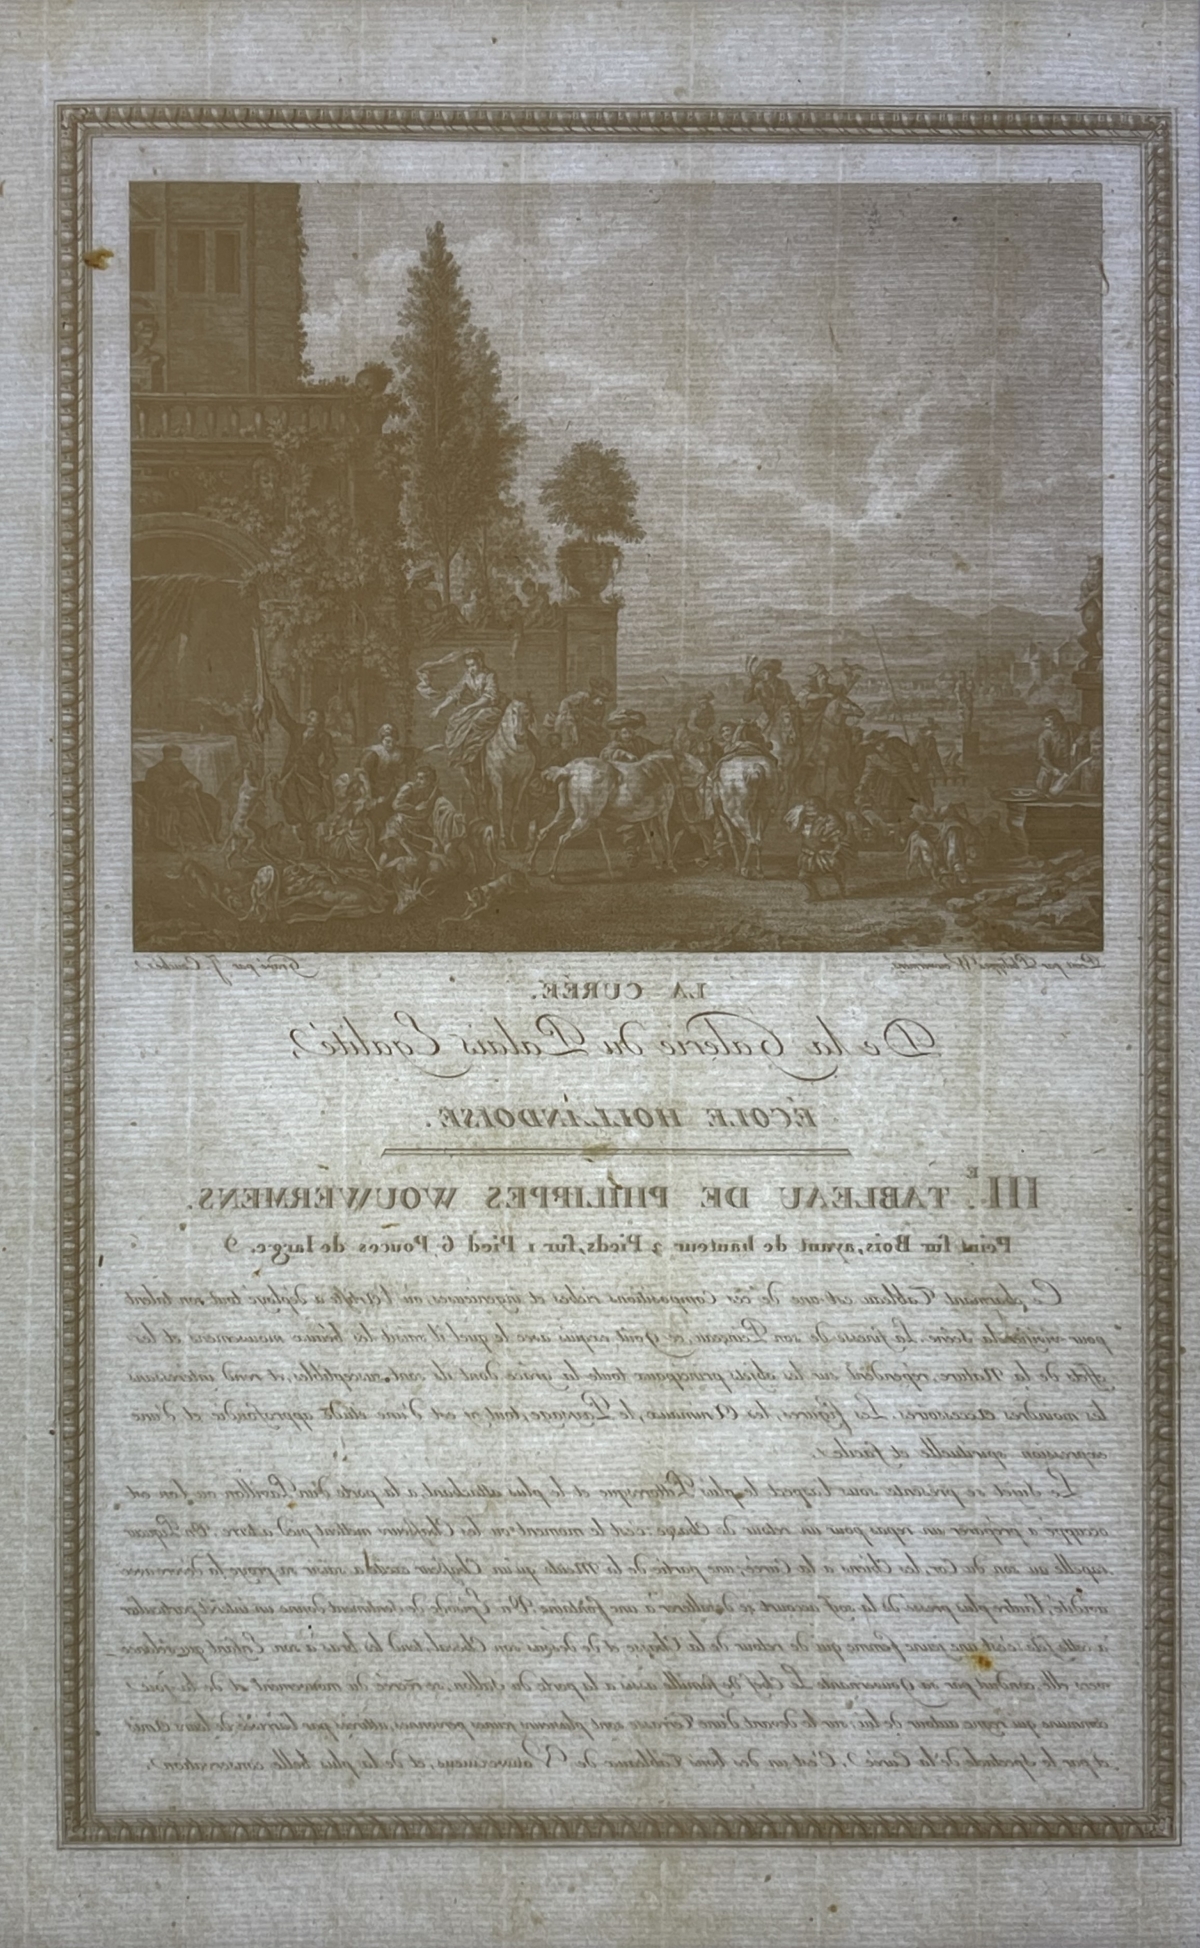 Peint par Philippe Wouvermens
Gravé par J. Couché
LA CURÉE.
De la Galerie du Palais Egalité,
ÉCOLE HOLLANDOISE.
III.E TABLEAU DE PHILIPPES WOUWERMENS.
Peint sur Bois, ayant de hauteur 2 Pieds, sur 1 Pied 6 Pouces de large.
Ce charmant Tableau est une de ces Compositions riches et ingenieuses, où l'Artiste a déployé tout son talent
pour vivifier la Scène. La finesse de son Pinceau, ce goût exquis avec le quel il saisit les heureux mouvemens et les
effets de la Nature, répandent sur les objets principaux toute la grâce dont ils sont susceptibles, et rend intéressans
les moindres accessoires. Les figures, les Animaux, le Paysage, tout y est d'une étude approfondie et d'une
expression spirituelle et facile.
Le Sujet se présente sous l'aspect le plus Pittoresque et le plus attachant, à la porte d'un Pavillon ou l'on est
occupé à préparer un repas pour un retour de Chasse: c'est le moment où les Chasseurs mettent pied a terre. Un Piqueur
rapelle au son du Cor, les Chiens a la Curée; une partie de la Meute qu'un Chasseur excite a saisir sa proye la dévore avec
avidité, l'autre plus pressé de la soif accourt se désalterer à une fontaine. Un Episode de sentiment donne un intérêt particulier
à cette fête: c'est une jeune femme qui de retour de la Chasse et de dessus son Cheval, tend les bras à son Enfant que
mere elle conduit par sa Gouvernante. Le Chef de famille assis à la porte du Sallon, se récrée du mouvement et de la joie
commune qui regne autour de lui; sur le devant d'une Terrasse sont plusieurs jeunes personnes, attirées par l'arrivée de leurs Amis
et par le spectacle de la Curée. C'est un des bons Tableaux de Wouvermens, et de la plus belle conservation.